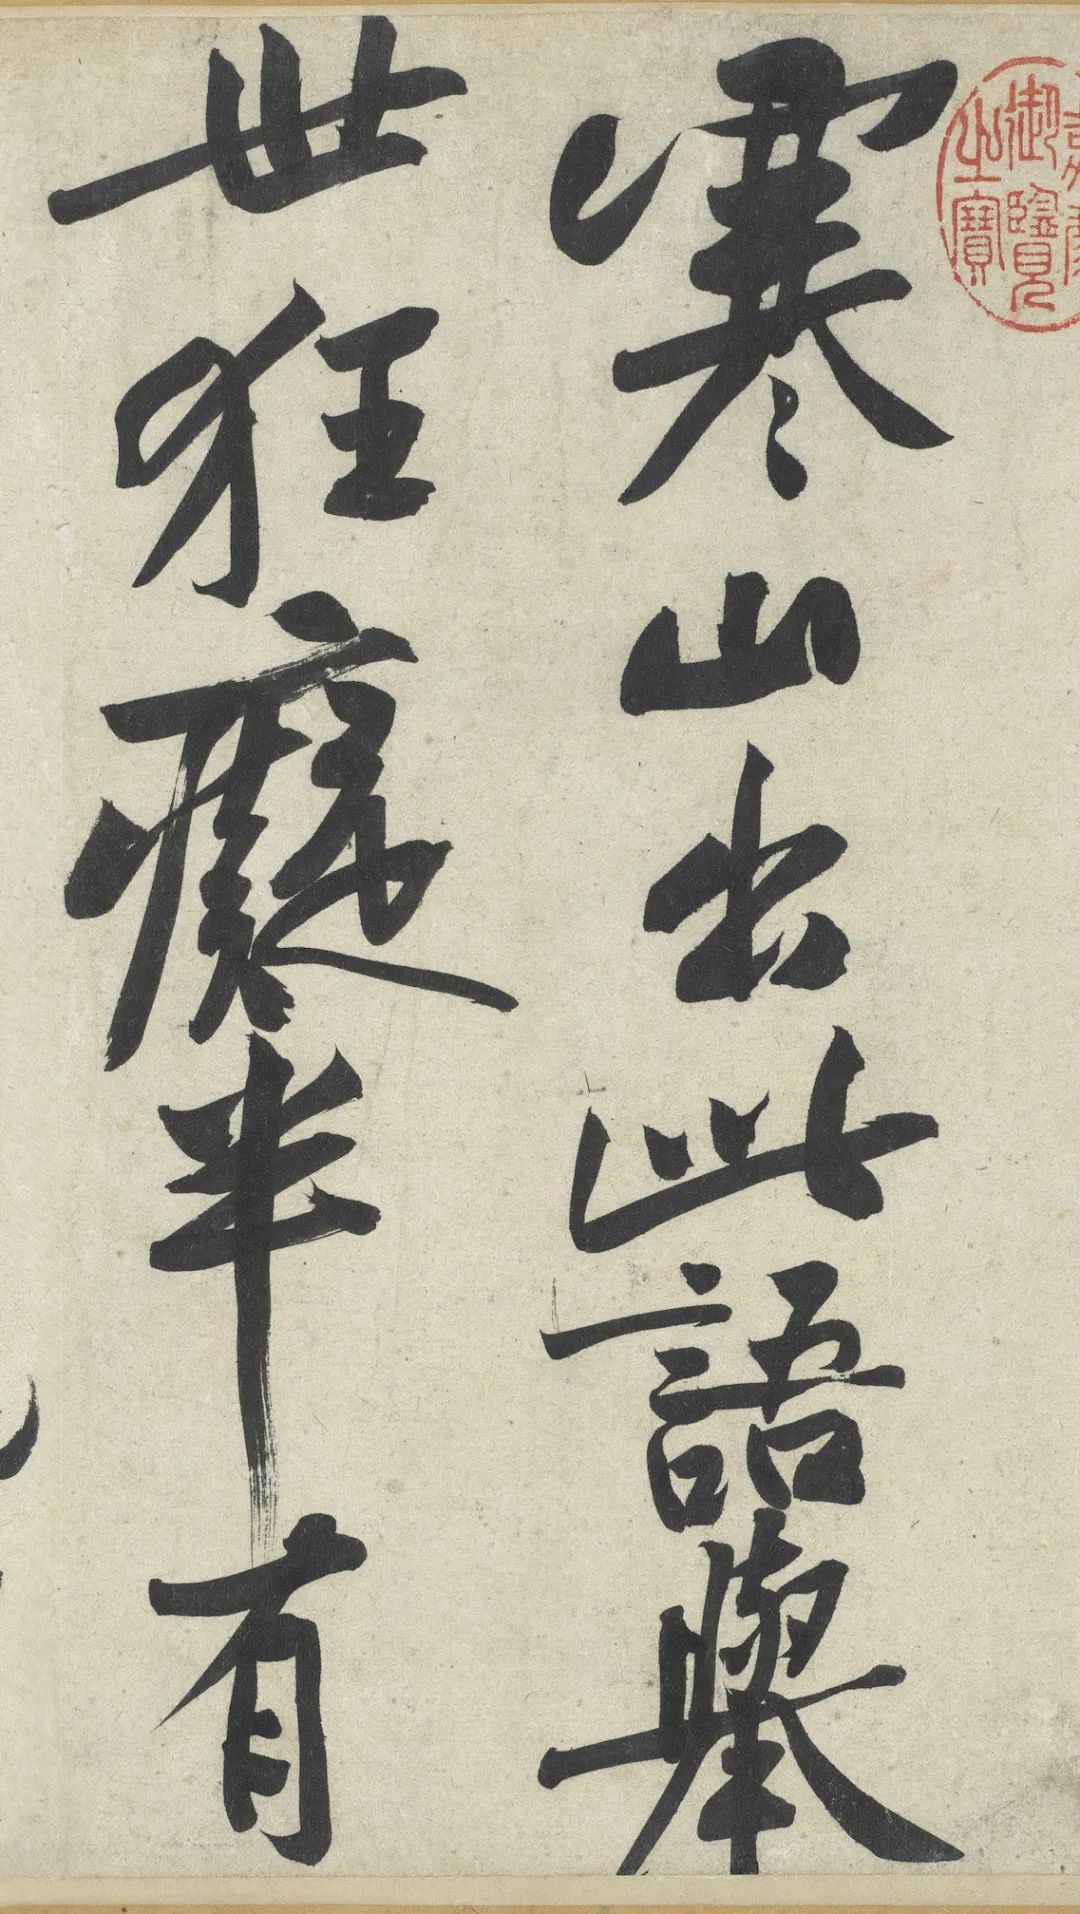 寒山出此語舉
世狂癡半有
御覽
之寶